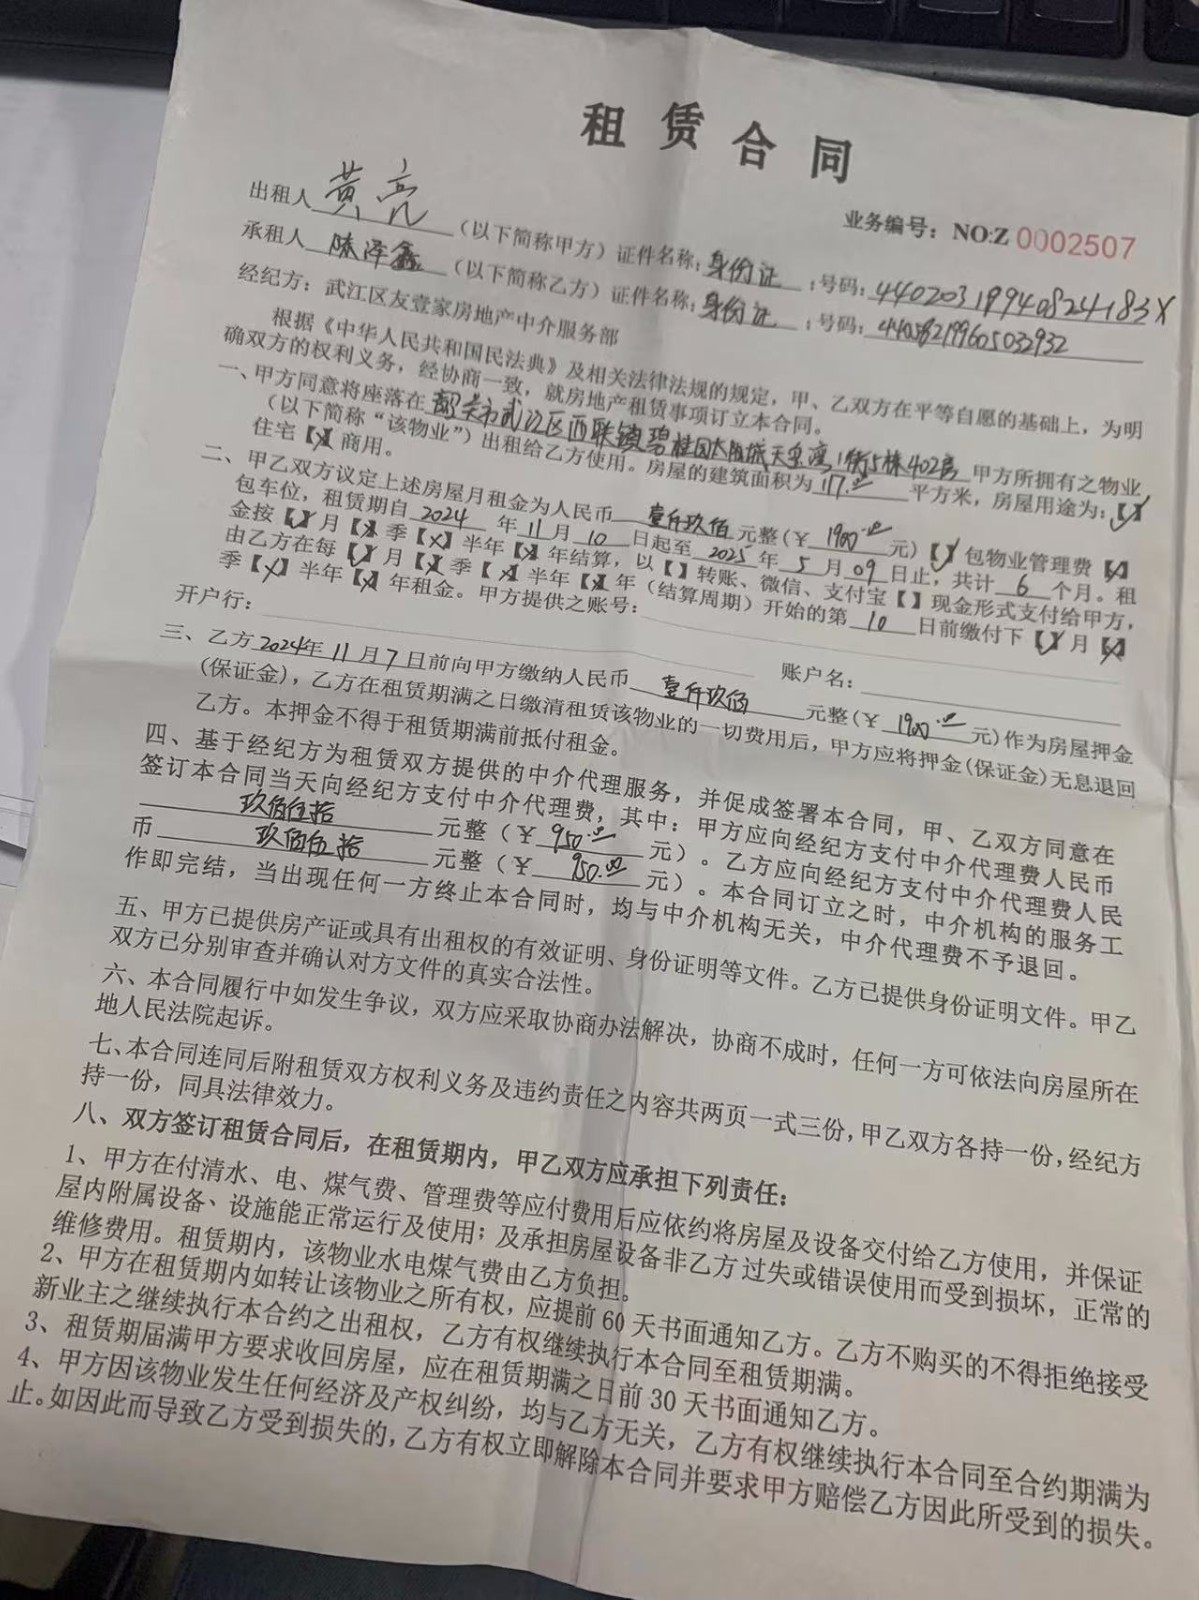 租赁合同
业务编号：NO:Z 0002507
出租人 黄亮 （以下简称甲方）证件名称：身份证 ；号码：44020319940824183X
承租人 陈泽鑫 （以下简称乙方）证件名称：身份证 ；号码：440582199605032932
经纪方：武江区友壹家房地产中介服务部
根据《中华人民共和国民法典》及相关法律法规的规定，甲、乙双方在平等自愿的基础上，为明
确双方的权利义务，经协商一致，就房地产租赁事项订立本合同。
一、甲方同意将座落在 韶关市武江区西联镇碧桂园太阳城天玺湾1街5栋402房 甲方所拥有之物业
（以下简称“该物业”）出租给乙方使用。房屋的建筑面积为 117.00 平方米，房屋用途为：【√】
住宅【×】商用。
二、甲乙双方议定上述房屋月租金为人民币 壹仟玖佰 元整（￥ 1900.00 元）【√】包物业管理费【×】
包车位，租赁期自 2024 年 11 月 10 日起至 2025 年 5 月 09 日止，共计 6 个月。租
金按【√】月【×】季【×】半年【×】年结算，以【 】转账、微信、支付宝【 】现金形式支付给甲方，
由乙方在每【√】月【×】季【×】半年【×】年（结算周期）开始的第 10 日前缴付下【√】月【×】
季【×】半年【×】年租金。甲方提供之账号：
开户行： 账户名：
三、乙方 2024年11月7日前向甲方缴纳人民币 壹仟玖佰 元整（￥ 1900.00 元）作为房屋押金
(保证金)，乙方在租赁期满之日缴清租赁该物业的一切费用后，甲方应将押金(保证金)无息退回
乙方。本押金不得于租赁期满前抵付租金。
四、基于经纪方为租赁双方提供的中介代理服务，并促成签署本合同，甲、乙双方同意在
签订本合同当天向经纪方支付中介代理费，其中：甲方应向经纪方支付中介代理费人民币
玖佰伍拾 元整（￥ 950.00 元）。乙方应向经纪方支付中介代理费人民
币 玖佰伍拾 元整（￥ 950.00 元）。本合同订立之时，中介机构的服务工
作即完结，当出现任何一方终止本合同时，均与中介机构无关，中介代理费不予退回。
五、甲方已提供房产证或具有出租权的有效证明、身份证明等文件。乙方已提供身份证明文件。甲乙
双方已分别审查并确认对方文件的真实合法性。
六、本合同履行中如发生争议，双方应采取协商办法解决，协商不成时，任何一方可依法向房屋所在
地人民法院起诉。
七、本合同连同后附租赁双方权利义务及违约责任之内容共两页一式三份，甲乙双方各持一份，经纪方
持一份，同具法律效力。
八、双方签订租赁合同后，在租赁期内，甲乙双方应承担下列责任：
1、甲方在付清水、电、煤气费、管理费等应付费用后应依约将房屋及设备交付给乙方使用，并保证
屋内附属设备、设施能正常运行及使用；及承担房屋设备非乙方过失或错误使用而受到损坏，正常的
维修费用。租赁期内，该物业水电煤气费由乙方负担。
2、甲方在租赁期内如转让该物业之所有权，应提前60天书面通知乙方。乙方不购买的不得拒绝接受
新业主之继续执行本合约之出租权，乙方有权继续执行本合同至租赁期满。
3、租赁期届满甲方要求收回房屋，应在租赁期满之日前30天书面通知乙方。
4、甲方因该物业发生任何经济及产权纠纷，均与乙方无关，乙方有权继续执行本合同至合约期满为
止。如因此而导致乙方受到损失的，乙方有权立即解除本合同并要求甲方赔偿乙方因此所受到的损失。